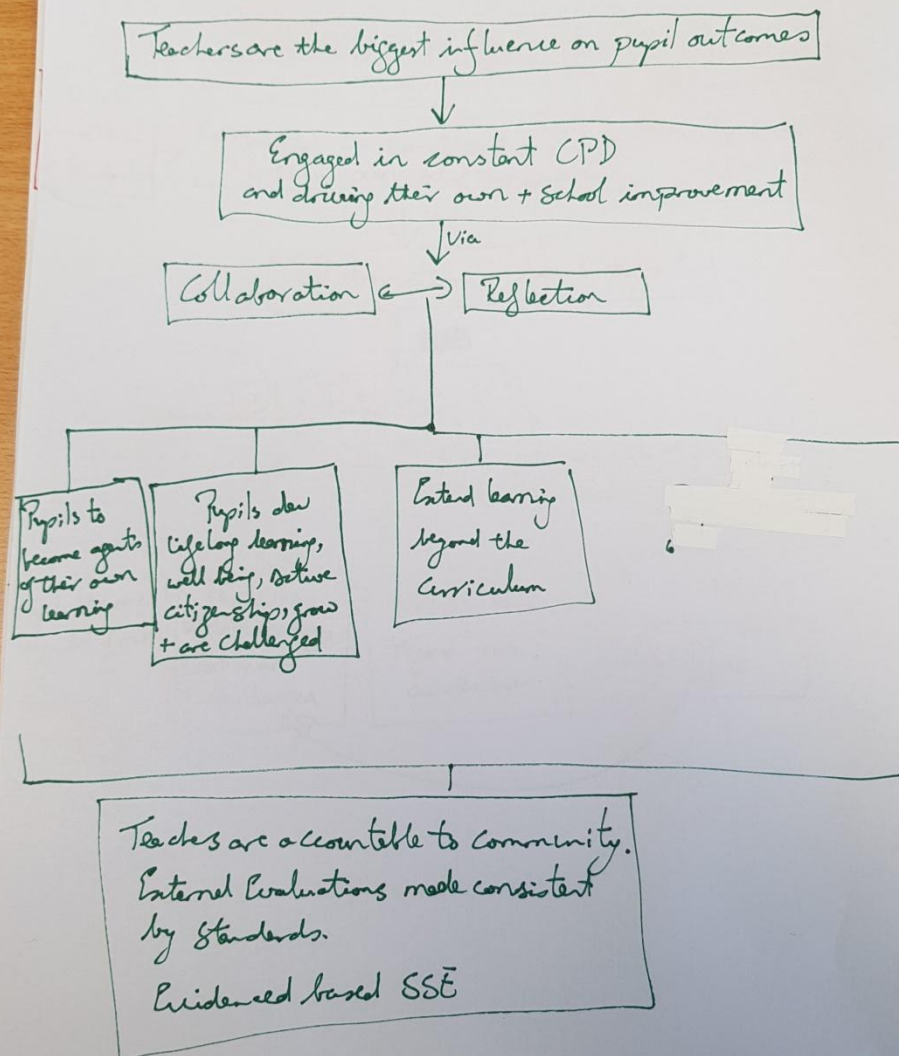 Teachers are the biggest influence on pupil outcomes
Engaged in constant CPD
and driving their own + School improvement
Via
Collaboration
Reflection
Pupils to
become agents
of their own
learning
Pupils dev
lifelong learning,
well being, active
citizenship, grow
+ are challenged
Extend learning
beyond the
Curriculum
Teachers are accountable to community.
External Evaluations made consistent
by standards.
Evidenced based SSE